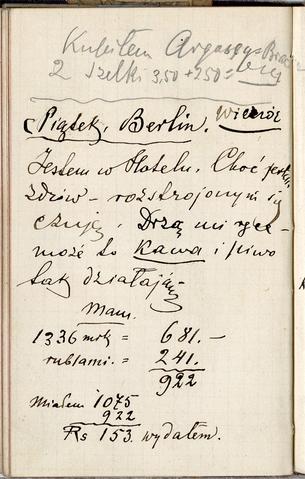 Kupiłem
2 szelki 3,50 + 250 =
Piątek, Berlin. Wieczór
Jestem w Hotelu. Choć jestem
zdrów – rozstrojonym się
czuję. Drżą mi ręce –
może to Kawa i piwo
tak działają –
Mam.
1336 mrk = 681.–
rublami. = 241.
922
Miałem 1075
922
Rs 153. wydałem.